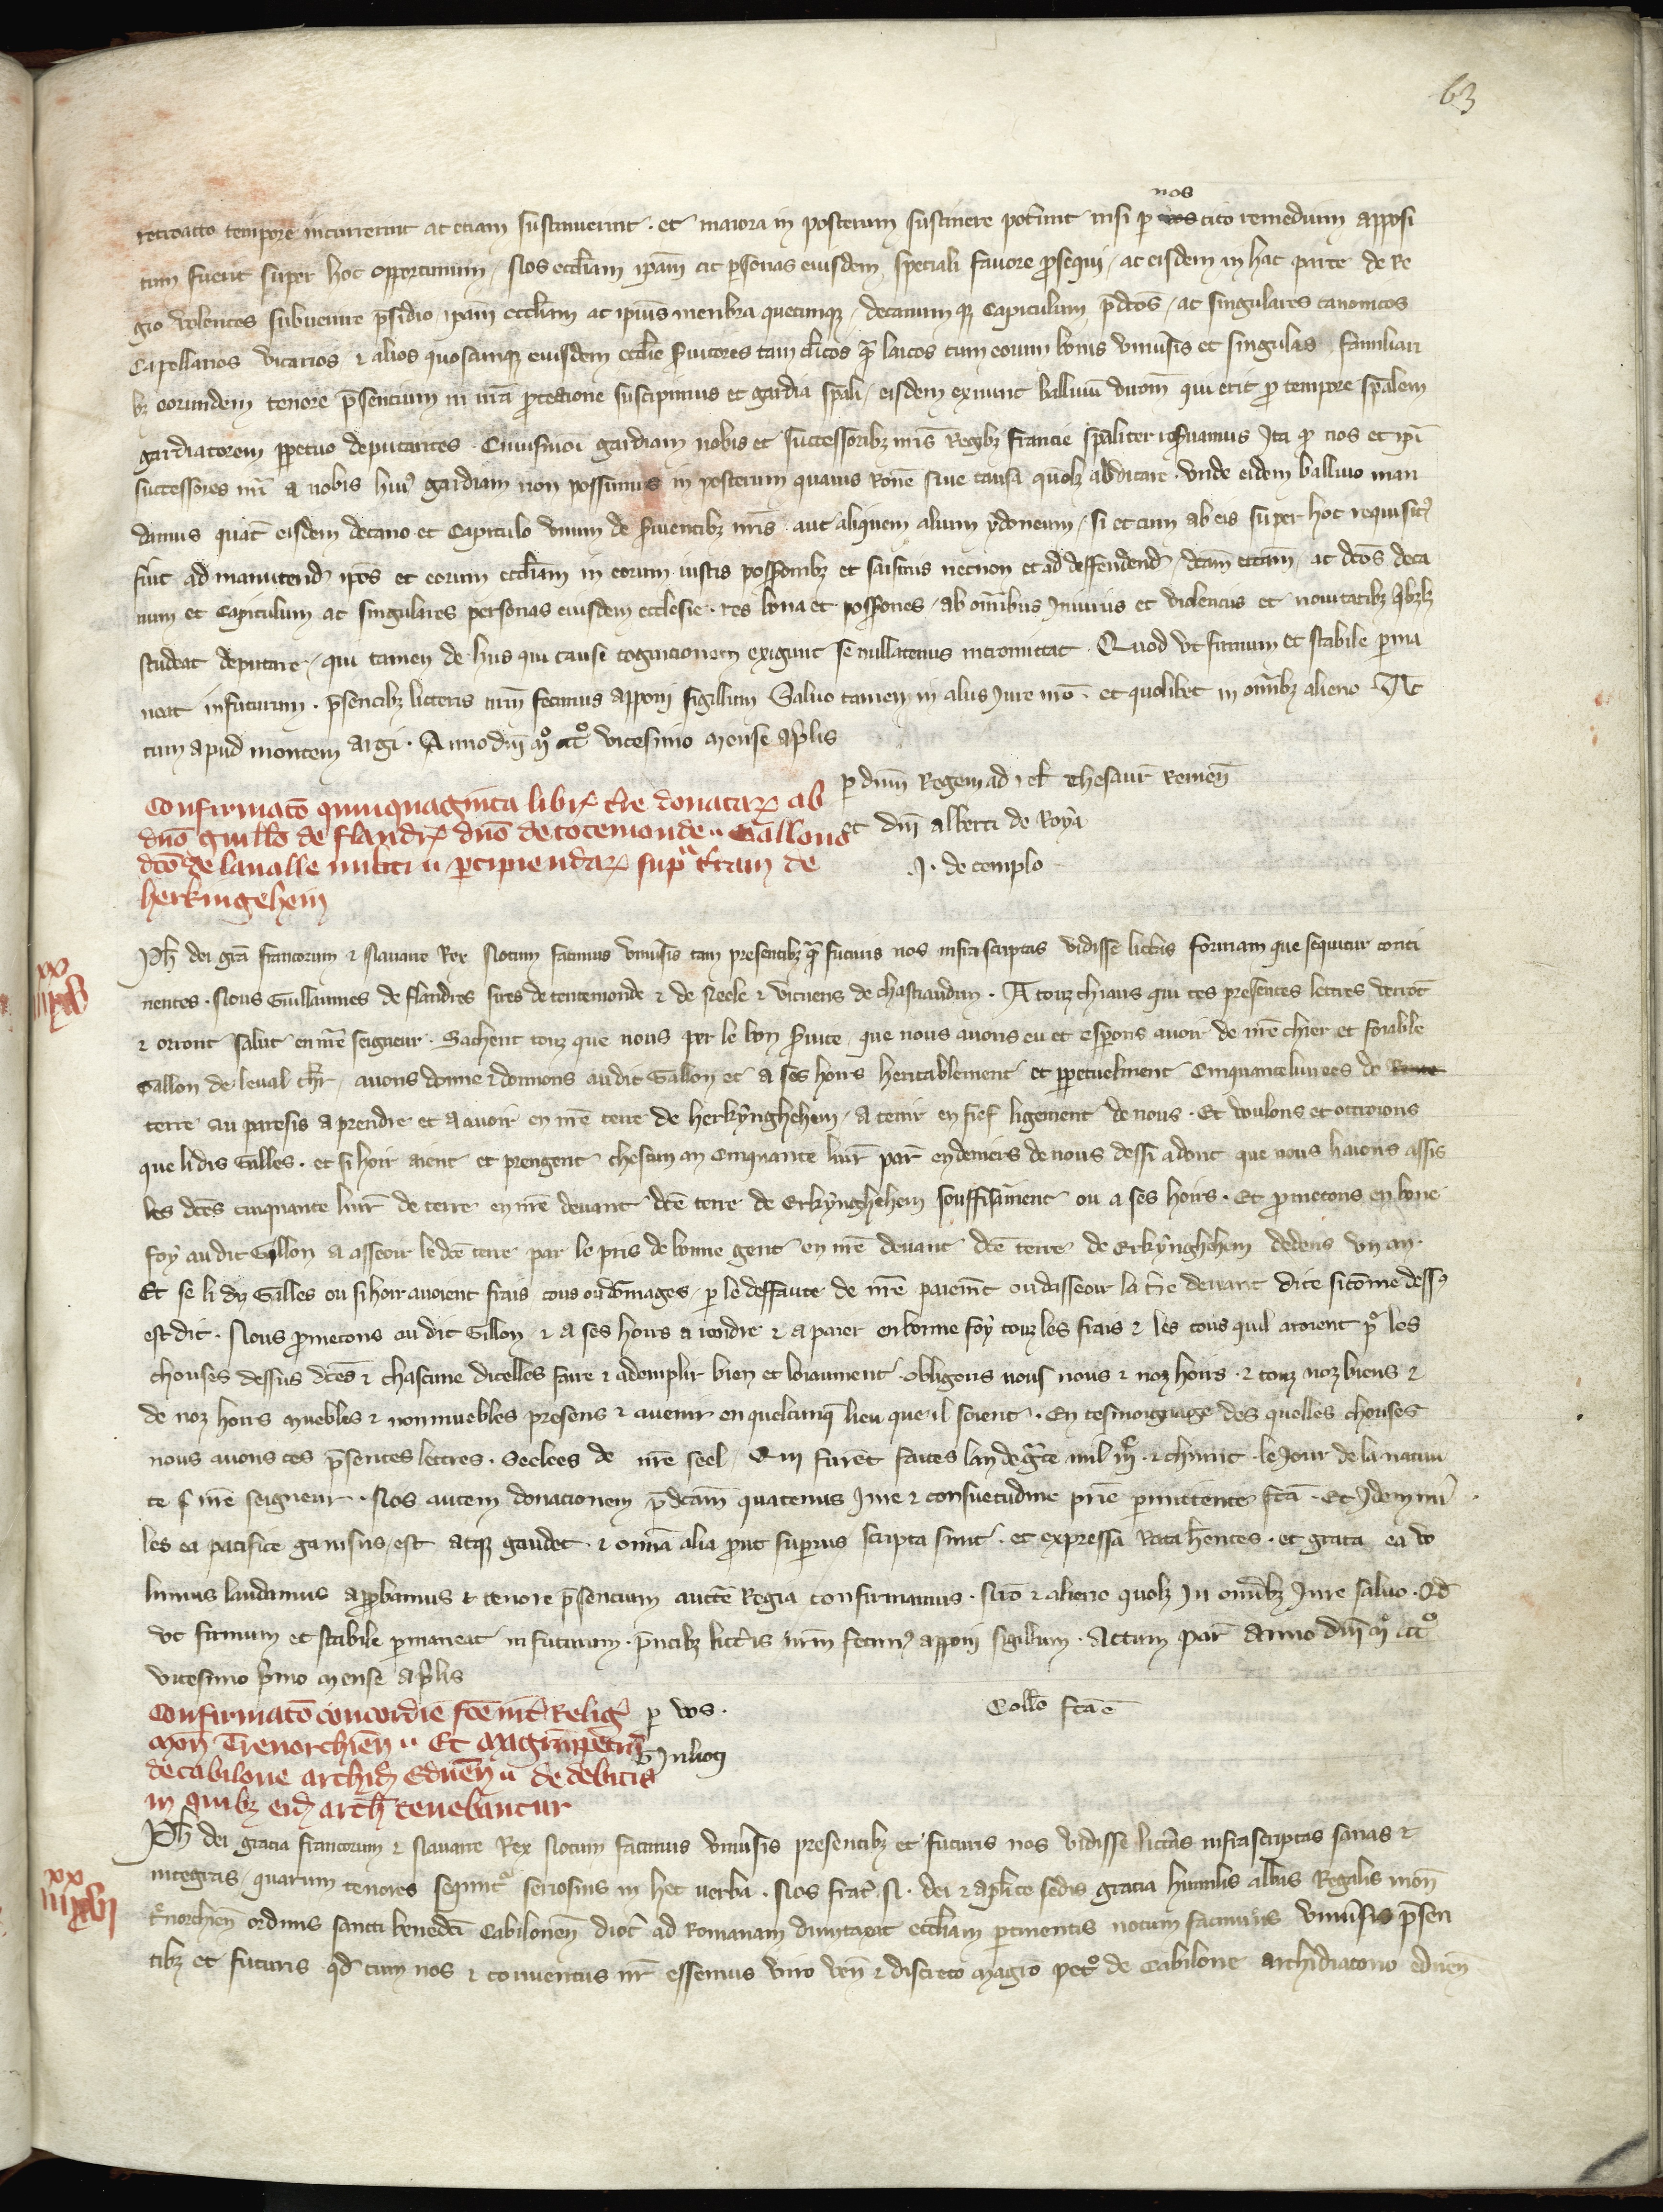 63
retroacto tempore incurrerint ac etiam sustinuerint. et maiora in posterum sustinere pot͛unt nisi ꝑ nos cito remedium apposi
tum fuerit super hoc opportunum, Nos eccl̃iam ip̃am ac ꝑsonas eiusdem speciali fauore ꝓsequi, ac eisdem in hac parte de Re
gio volentes subuenire p̃sidio, ip̃am eccl̃iam ac ip̃ius menbra quecunqꝫ, decanum qꝫ Capitulum p̃dc̃os, ac singulares canonicos
Capellanos vicarios ⁊ alios quoscunqꝫ eiusdem eccl̃ie s̃uitores tam cl̃icos qᵃ̃ laicos cum eorum bonis vniu͛sis et singulas familiari
bꝫ eorundem tenore p̃sentium in nr̃a ꝓtectione suscipimus et gardia sp̃ali, eisdem exnunc balliuũ diuoñ qui erit ꝓ tempore sp̃alem
gardiatorem ꝑpetuo deputantes. Cuiusmoi gardiam nobis et successoribꝫ nr̃is Regibꝫ francie sp̃aliter res̃uamus Ita ꝙ nos et ip̃i
successores nr̃i a nobis huiꝰ gardiam non possimus in posterum quauis rõne siue causa quolꝫ abdicare. vnde eidem balliuo man
damus quat̃ eisdem decano et Capitulo vnum de s̃uientibꝫ nr̃is aut aliquem alium ydoneum, si et cum ab eis super hoc requisitꝰ
fuit ad manutend̃ ip̃os et eorum eccl̃iam in eorum iustis poss̃ionibꝫ et saisinis necnon et ad deffendend̃, dc̃am eccl̃iam ac dc̃os deca
num et Capitulum ac singulares personas eiusdem ecclesie. res bona et poss̃iones, ab om̃ibus Iniuriis et violenciis et nouitatibꝫ q̃bꝫlꝫ
studeat deputare, qui tamen de hiis que cause cognicionem exigunt se nullatenus intromittat. Quod vt firmum et stabile ꝑma
neat infuturum. p̃sentibꝫ litteris nr̃m fecimus apponi sigillum Saluo tamen in aliis Iure nr̃o. et quolibet in om̃ibꝫ alieno. Ac
tum apud montem argi. Anno dñi m̊ ccc̊ vicesimo mense ap̃lis
ꝑ dñm Regem ad rel̃ thesaur̃ Remeñ
et dñi alberti de Roya
J. de templo
Confirmatõ quinquaginta libr̃ tr̃e donataꝝ ab
dño guill̃o de flandr̃ dño de tenremonde Galloni
dc̃o de laualle militi ꝑcipiendaꝝ supᵃ tr̃am de
herkingehem
Ph̃ dei gr̃a francorum ⁊ Nauarre Rex Notum facimus vniu͛sis tam presentibꝫ qᵃ̃ futuris nos infrascriptas vidisse litt͛as formam que sequitur conti
nentes. Nous Guillaumes de flandres sires de tenremonde ⁊ de Neele ⁊ vicuens de chastiaudun. A touz chiaus qui ces presentes lettres verrõt
⁊ orront salut en nr̃e seigneur. Sachent touz que nous per le bon s̃uice que nous auons eu et esꝑons auoir de nr̃e chier et foiable
Gallon de leual ch̃r, auons donne ⁊ donnons audit Gallon et a ses hoirs heritablement et ꝑpetuelment Cinquante liurees de
terre au paresis a prendre et a auoir en nr̃e terre de herkynghehem, a tenir en fief ligement de nous. Et voulons et octroions
que li dis Gilles. et si hoir aient et prengent chescun an Cinquante liur̃ par̃ en deniers de nous dessi adont que nous haions assis
les dc̃es cinquante liur̃ de terre en nr̃e deuant dc̃e terre de Erkynghehem souffisãment ou a ses hoirs. Et ꝓmetons en bone
foy au dit Gillon a asseoir le dc̃e terre par le pris de bonne gent en nr̃e deuant dc̃e terre de Erkynghehem dedens vn an.
Et se li dis Gilles ou si hoir auoient frais cous ou dõmages, ꝑ le deffaute de nr̃e paiem̃t ou dasseoir la tr̃e deuant dite si cõme dessꝰ
est dit. Nous ꝓmetons au dit Gillon ⁊ a ses hoirs a rendre ⁊ a paier en bonne foy touz les frais ⁊ les cous quil aroient pᵒ les
chouses dessus dc̃es ⁊ chascune dicelles faire ⁊ ademplir bien et loiaument obligons nous nous ⁊ noz hoirs. ⁊ touz noz biens ⁊
de noz hoirs muebles ⁊ nonmuebles presens ⁊ auenir en quelcunqꝫ lieu que il soient. En tesmoignage des quelles chouses
nous auons ces p̃sentes lettres. Seelees de nr̃e seel, Qui furẽt faites lan de gᵃce mil iij̊. ⁊ chiunc. le Jour de la natiui
te nr̃e seigneur. Nos autem donacionem p̃dc̃am quatenus Iure ⁊ consuetudine pr̃ie ꝑmittente fc̃a. Et Idem mi
les ea pacifice gauisus est atqꝫ gaudet. ⁊ om̃ia alia ꝓut suꝑius scripta sunt. et expressa Rata h̃entes. et grata ea vo
lumus laudamus apꝓbamus ⁊ tenore p̃sentium auct̃e Regia confirmamus. Nr̃o ⁊ alieno quolꝫ In om̃ibꝫ Iure saluo. Qd̃
vt firmum et stabile ꝑmaneat in futurum. p̃ntibꝫ litt͛is nr̃m fecimꝰ apponi sigillum. Actum par̃ Anno dñi m̊ ccc̊
vicesimo p̃mo mense ap̃lis
ꝑ vos.
Coll̃o fc̃a ẽ
Confirmatõ concordie fc̃e int͛ Religꝰ
moñ Trenorchieñ Et magr̃m petrũ
de cabilone archid̃ Edueñ de debitis
in quibꝫ eid̃ arch̃ tenebantur
Ph̃ dei gracia francorum ⁊ Nauarre Rex Notum facimus vniu͛sis presentibꝫ et futuris nos vidisse litt͛as infrascriptas sanas ⁊
integras, quarum tenores sequntᵒ seriosius in hec uerba. Nos frat͛ N. dei ⁊ apl̃ice sedis gracia humilis abbas Regalis moñ
T͛norchieñ ordinis sancti benedc̃i Cabiloneñ dioc̃ ad Romanam dumtaxat eccl̃iam ꝑtinentis notum facimus vniu͛sis p̃sen
tibꝫ et futuris qd̃ cum nos ⁊ conuentus nr̃ essemus viro veñ ⁊ discreto magr̃o pet̊ de Cabilone archidiacono edueñ